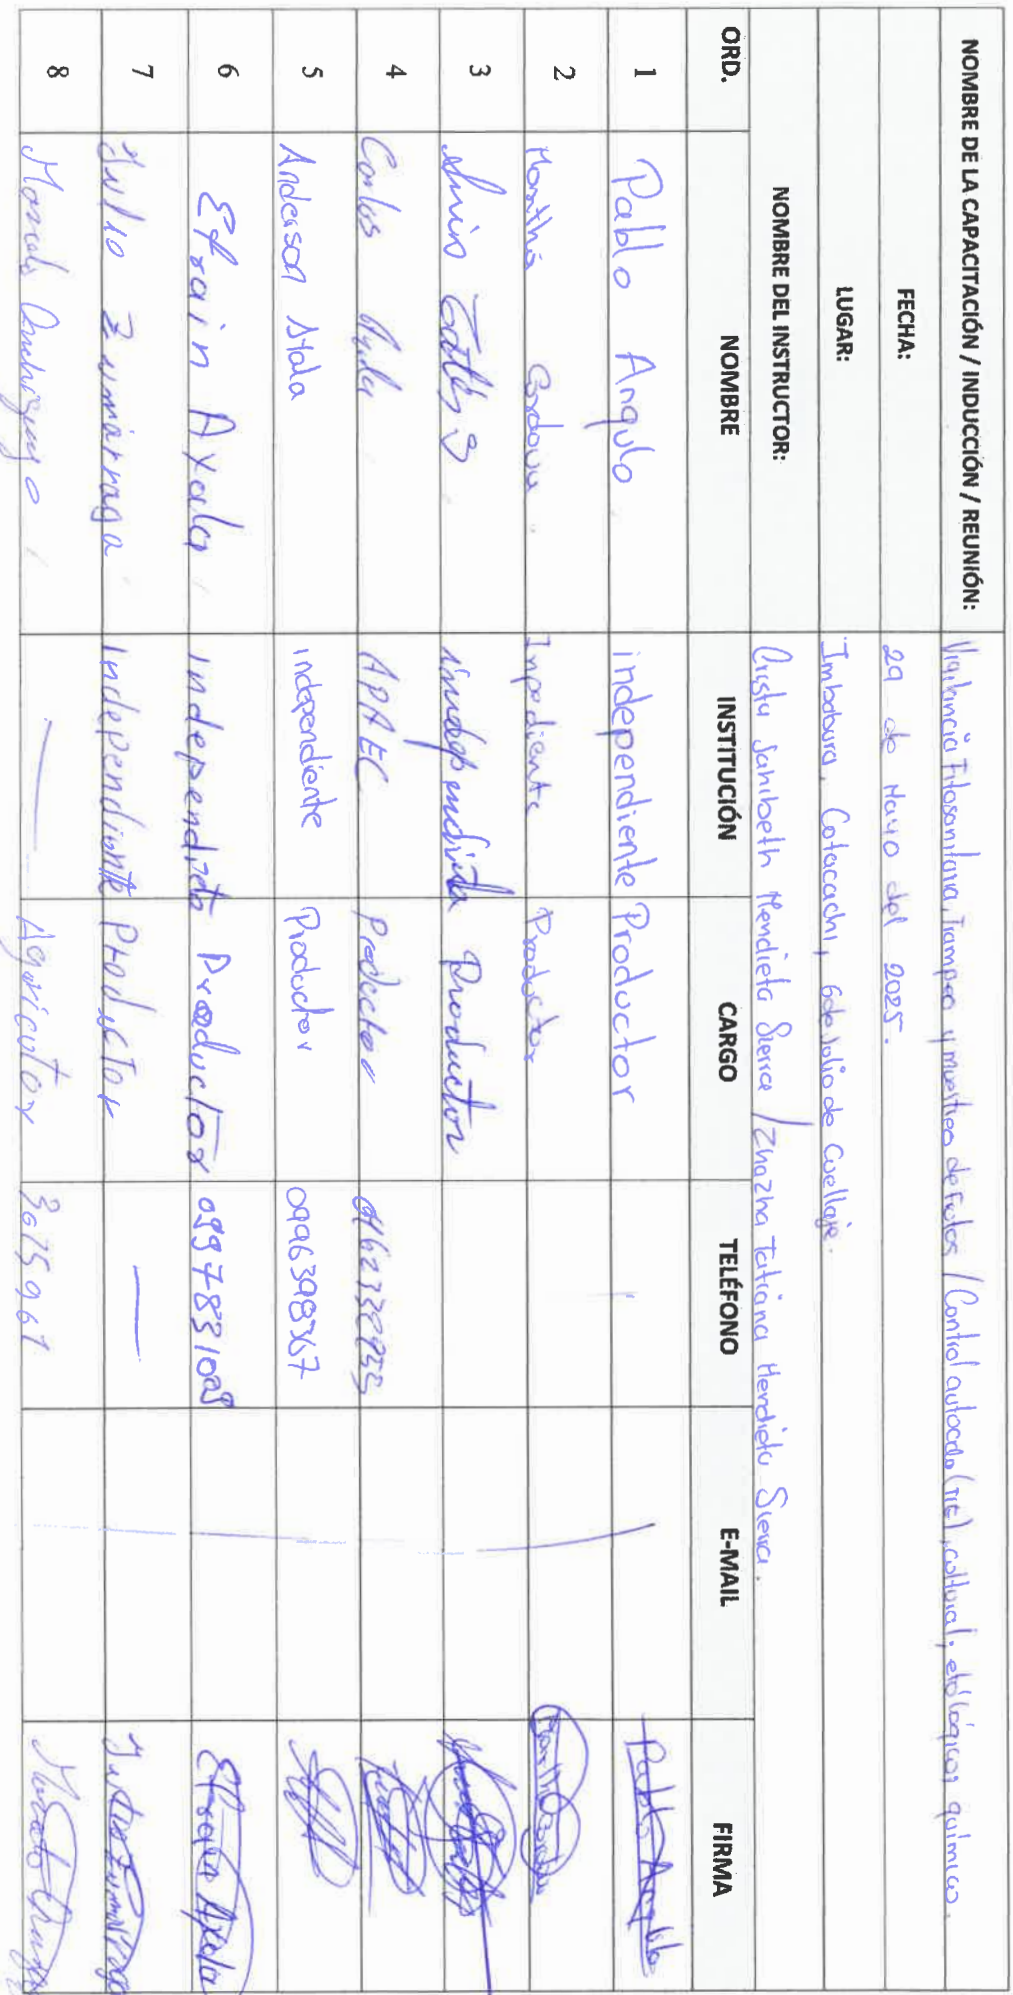 NOMBRE DE LA CAPACITACIÓN / INDUCCIÓN / REUNIÓN: Vigilancia Fitosanitaria, Trampeo y muestreo de frutos / Control autocida (TIE), cultural, etológico, químico.
FECHA: 29 de Mayo del 2025.
LUGAR: Imbabura, Cotacachi, 6 de Julio de Cuellaje.
NOMBRE DEL INSTRUCTOR: Crista Sanibeth Mendieta Sierra / Zhazha Tatiana Mendieta Sierra.
ORD. NOMBRE INSTITUCIÓN CARGO TELÉFONO E-MAIL FIRMA
1 Pablo Angulo independiente Productor Pablo Angulo
2 Martha Cordova Inpediente Productor
3 independiente Productor
4 Carlos Ayala APAEC Productor
5 Anderson Ayala independiente Productor 0996398367
6 Efrain Ayala Independinte Productor 0997831009 Efrain Ayala
7 Julio Zumárraga Independiente Productor — Julio Zumárraga
8 — Agricultor 3015961